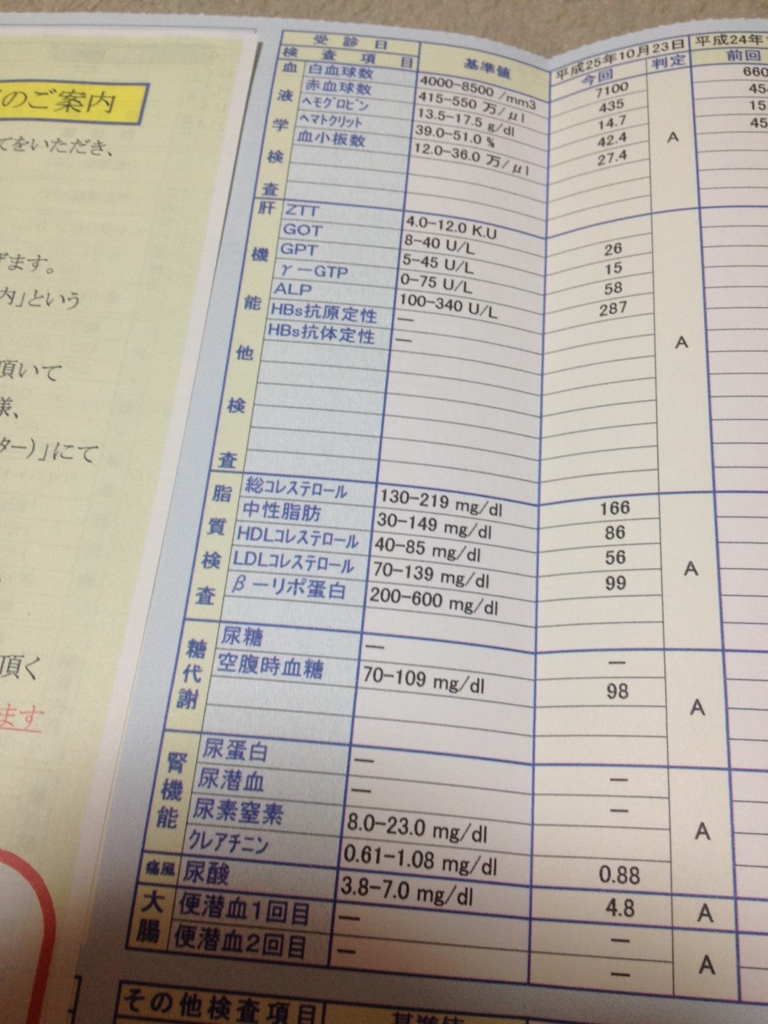 のご案内
てをいただき、
げます。
内」という
頂いて
様、
ター)」にて
頂く
ます
受診日 基準値 平成25年10月23日 平成24年
検査項目 今回 判定 前回
血液学検査
白血球数 4000-8500 /mm3 7100 A 660
赤血球数 415-550 万/μl 435 45
ヘモグロビン 13.5-17.5 g/dl 14.7 15
ヘマトクリット 39.0-51.0 % 42.4 45
血小板数 12.0-36.0 万/μl 27.4
肝機能他検査
ZTT 4.0-12.0 K.U A
GOT 8-40 U/L 26
GPT 5-45 U/L 15
γ-GTP 0-75 U/L 58
ALP 100-340 U/L 287
HBs抗原定性 —
HBs抗体定性 —
脂質検査
総コレステロール 130-219 mg/dl 166 A
中性脂肪 30-149 mg/dl 86
HDLコレステロール 40-85 mg/dl 56
LDLコレステロール 70-139 mg/dl 99
β-リポ蛋白 200-600 mg/dl
糖代謝
尿糖 — — A
空腹時血糖 70-109 mg/dl 98
腎機能
尿蛋白 — — A
尿潜血 — —
尿素窒素 8.0-23.0 mg/dl
クレアチニン 0.61-1.08 mg/dl 0.88
痛風 尿酸 3.8-7.0 mg/dl 4.8 A
大腸
便潜血1回目 — — A
便潜血2回目 — —
その他検査項目 基準値